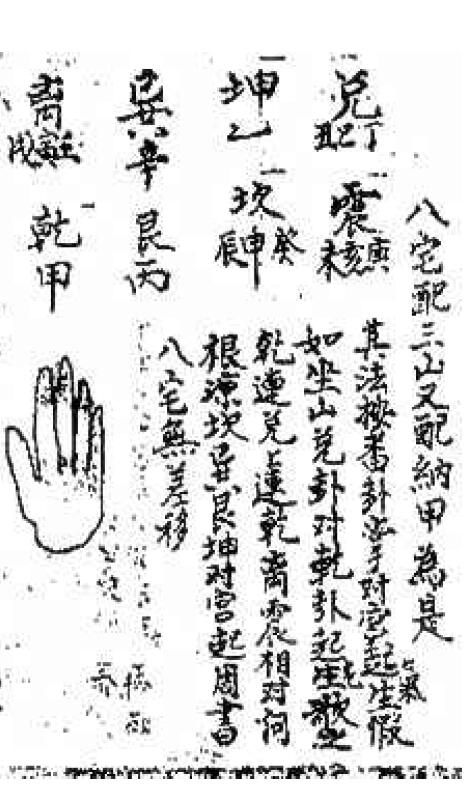 八宅配三山又配納甲為是
兑丁巳丑
震庚亥未
坤乙
坎癸申辰
巽辛
艮丙
离壬寅戌
乾甲
其法挨番卦对宫起生氣假
如坐山兑卦对乾卦起生
乾連兑連乾离震相对
根源坎巽艮坤对宫起周書
八宅無差移